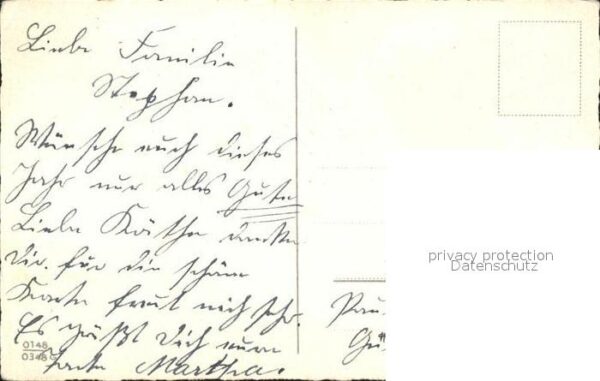 Liebe Familie
Stephan.
Wünsche euch dieses
Jahr nur alles Gute
Liebe Käthe danke
Dir. für die schöne
Karte freut mich sehr.
Es grüßt Dich eure
Tante Martha.
0148
0348
Pau
Gü
privacy protection
Datenschutz